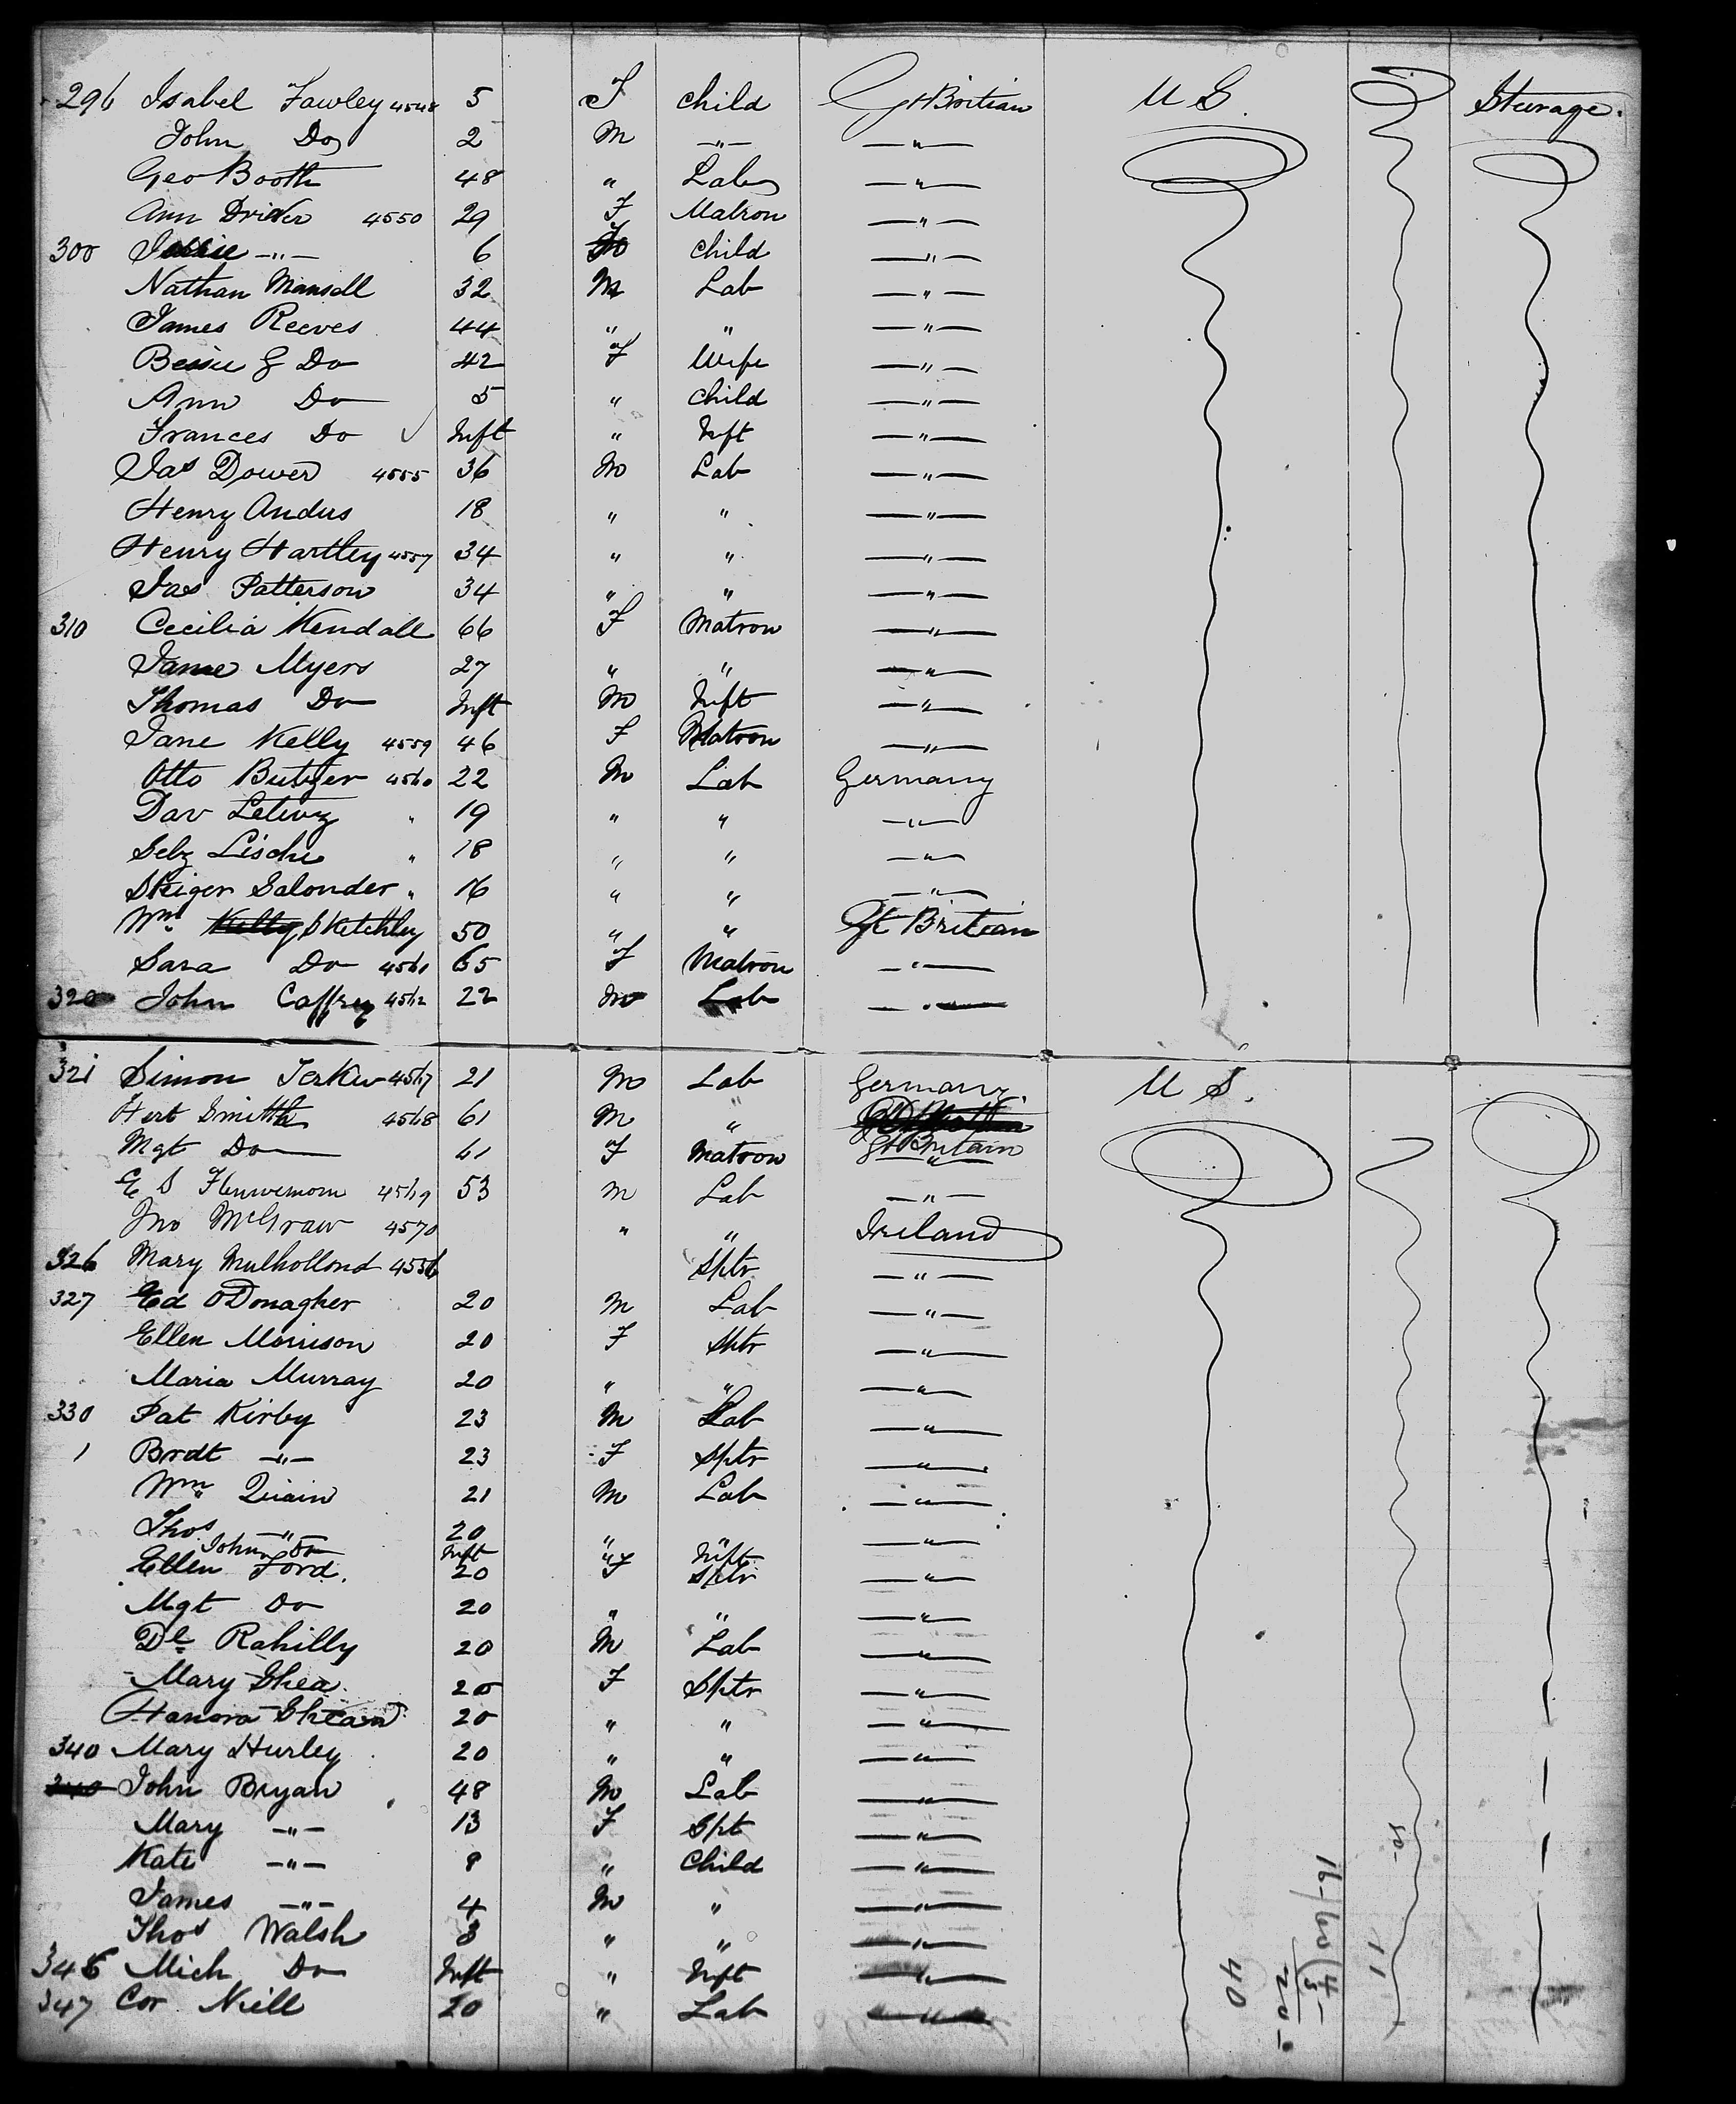 296 Isabel Fawley 4548 5 F child Gt Britian U S. Sturage.
John Do 2 M —"—  —"—
Geo Booth 48 " Lab —"—
Ann Driver 4550 29 F Matron —"—
300 —"— 6 F child —"—
Nathan Mansell 32 M Lab —"—
James Reeves 44 " " —"—
Bessie G Do 42 F Wife —"—
Ann Do 5 " child —"—
Frances Do ✓ Inft " Inft —"—
Jas Dower 4555 36 M Lab —"—
Henry Andus 18 " " —"—
Henry Hartley 4557 34 " " —"—
Jas Patterson 34 " " —"—
310 Cecilia Kendall 66 F Matron —"—
Jane Myers 27 " " —"—
Thomas Do Inft M Inft —"—
Jane Kelly 4559 46 F Matron —"—
Otto Butzer 4560 22 M Lab Germany
Dav " 19 " " —"—
Selz Lische " 18 " " —"—
Skiger Salonder " 16 " " —"—
Wm Kelly Sketchley 50 " " Gt Britian
Sara Do 4561 65 F Matron —"—
320 John Caffrey 4562 22 M Lab —"—
321 Simon 4567 21 M Lab Germany U S.
Hert Smith 4568 61 M "
Mgt Do 61 F Matron Gt Britain
E S 4569 53 M Lab —"—
Jno McGraw 4570 " " Ireland
326 Mary Mulhollond 4556 Sptr —"—
327 Ed O'Donagher 20 M Lab —"—
Ellen Morrison 20 F Sptr —"—
Maria Murray 20 " " —"—
330 Pat Kirby 23 M Lab —"—
1 Brdt —"— 23 F Sptr —"—
Wm Quain 21 M Lab —"—
Thos —"— 20 " " —"—
John Do Inft " Inft
Ellen Ford. 20 F Sptr —"—
Mgt Do 20 " " —"—
Dl Rahilly 20 M Lab —"—
Mary Shea. 20 F Sptr —"—
Hanora 20 " " —"—
340 Mary Hurley 20 " " —"—
340 John Bryan 48 M Lab —"—
Mary —"— 13 F Spt —"—
Kate —"— 8 " Child —"—
James —"— 4 M " —"—
Thos Walsh 3 " " —"—
346 Mich Do Inft " Inft —"—
347 Cor Neill 20 " Lab —"—
40